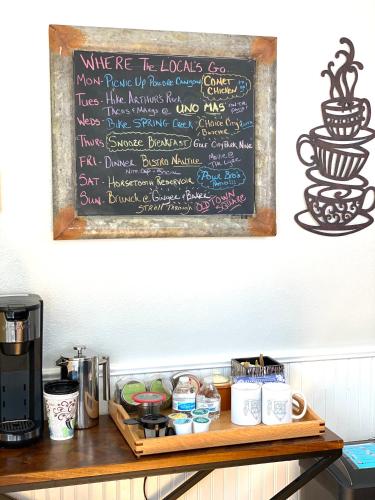 WHERE The LOCALS Go...
MON- PICNIC UP POUDRE CANYON COMET CHICKEN
TUES- HIKE ARTHUR'S ROCK
TACOS & MARGS @ UNO MAS
WEDS- BIKE SPRING CREEK CHOICE CITY BUTCHER
THURS- SNOOZE BREAKFAST GOLF CITY PARK NINE
FRI- DINNER BISTRO NAUTILE MOVIE @ THE LYRIC
SAT- HORSETOOTH RESERVOIR POUR BRO'S
SUN- BRUNCH @ GINGER & BAKER
STROLL THROUGH OLD TOWN SQUARE